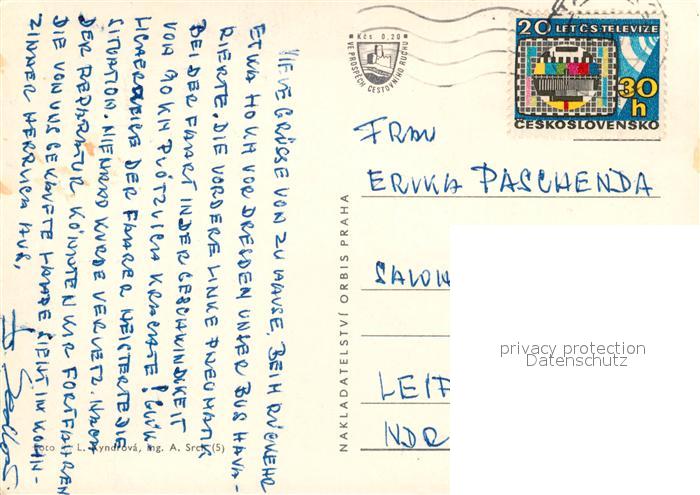 VIELE GRÜSSE VON ZU HAUSE. BEIM RÜCKKEHR
ETWA 40 KM VOR DRESDEN UNSER BUS HAVA-
RIERTE. DIE VORDERE LINKE PNEUMATIK
BEI DER FAHRT IN DER GESCHWINDIKEIT
VON 90 KM PLÖTZLICH KRACHTE! GLÜK-
LICHERWEISE DER FAHRER MEISTERTE DIE
SITUATION. NIEMAND WURDE VERLETZ. NACH
DER REPARATUR KÖNNTEN WIR FORTFAHREN
DIE VON UNS GEKAUFTE LAMPE SIEHT IM WOHN-
ZIMMER HERRLICH AUS.
Foto L. Kyndrová, Ing. A. Srch (5)
NAKLADATELSTVÍ ORBIS PRAHA
Kčs 0,20
VE PROSPĚCH CESTOVNÍHO RUCHU
20 LET ČS. TELEVIZE
30 h
ČESKOSLOVENSKO
FRAU
ERIKA PASCHENDA
SALOM
LEIP
NDR
privacy protection
Datenschutz